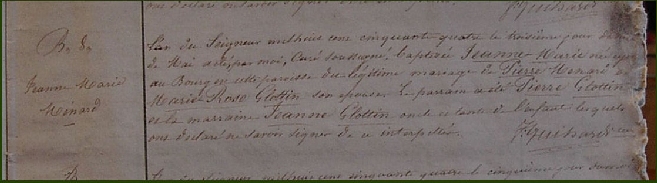 ont déclaré ne savoir signer de ce
J. Guihard
B. 8.
Jeanne Marie
Menard
L'an du Seigneur mil huit cent cinquante quatre le troisième jour du mois
de Mai a été, par moi, Curé soussigné, baptisée Jeanne Marie née
au Bourg de cette paroisse du légitime mariage de Pierre Menard et
Marie Rose Glottin son épouse. Le parrain a été Pierre Glottin
et la marraine Jeanne Glottin oncle et tante de l'enfant lesquels
ont déclaré ne savoir signer de ce interpellés.
J. Guihard
L'an du Seigneur mil huit cent cinquante quatre le cinquième jour du mois